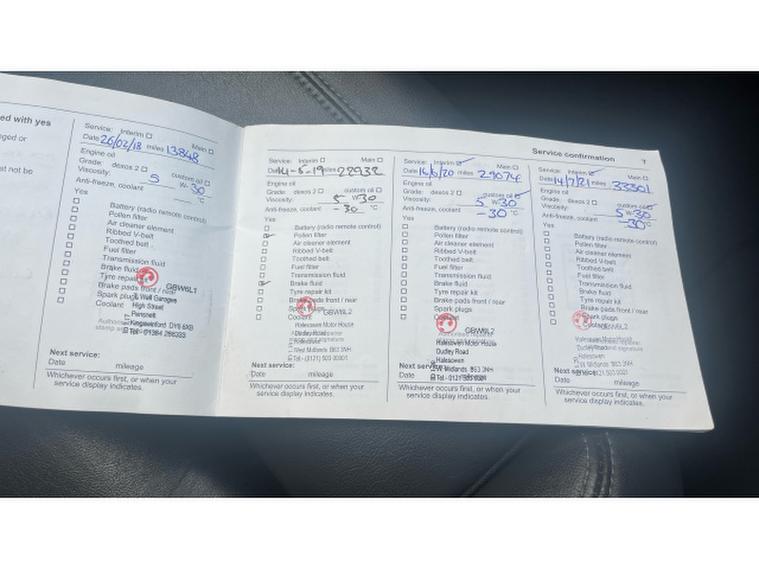 ed with yes
ged or
st not be
Service: Interim Main
Date 26/02/18 miles 13848
Engine oil
Grade: dexos 2 custom oil
Viscosity: 5 W-30
Anti-freeze, coolant °C
Yes
Battery (radio remote control)
Pollen filter
Air cleaner element
Ribbed V-belt
Toothed belt
Fuel filter
Transmission fluid
Brake fluid
Tyre repair
Brake pads front / rear
Spark plugs
Coolant
GBW6L1
Wall Garages
High Street
Pensnett
Kingswinford DY6 8XB
Next service:
Date mileage
Whichever occurs first, or when your
service display indicates.
Service confirmation 7
Service: Interim Main
Date 14-5-19 miles 22932
Engine oil
Grade: dexos 2 custom oil
Viscosity: 5 W30
Anti-freeze, coolant -30 °C
Yes
Battery (radio remote control)
Pollen filter
Air cleaner element
Ribbed V-belt
Toothed belt
Fuel filter
Transmission fluid
Brake fluid
Tyre repair kit
Brake pads front / rear
Spark plugs
Coolant
GBW6L2
Halesowen Motor House
Dudley Road
Halesowen
West Midlands B63 3NH
Next service:
Date mileage
Whichever occurs first, or when your
service display indicates.
Service: Interim Main
Date 14/6/20 miles 29074
Engine oil
Grade: dexos 2 custom oil
Viscosity: 5 W30
Anti-freeze, coolant -30 °C
Yes
Battery (radio remote control)
Pollen filter
Air cleaner element
Ribbed V-belt
Toothed belt
Fuel filter
Transmission fluid
Brake fluid
Tyre repair kit
Brake pads front / rear
Spark plugs
Coolant
GBW6L2
Halesowen Motor House
Dudley Road
Halesowen
W Midlands B63 3NH
Next service:
Date mileage
Whichever occurs first, or when your
service display indicates.
Service: Interim Main
Date 14/7/21 miles 33301
Engine oil
Grade: dexos 2 custom oil
Viscosity: 5 W30
Anti-freeze, coolant -30°C
Yes
Battery (radio remote control)
Pollen filter
Air cleaner element
Ribbed V-belt
Toothed belt
Fuel filter
Transmission fluid
Brake fluid
Tyre repair kit
Brake pads front / rear
Spark plugs
Coolant
Next service:
Date mileage
Whichever occurs first, or when your
service display indicates.